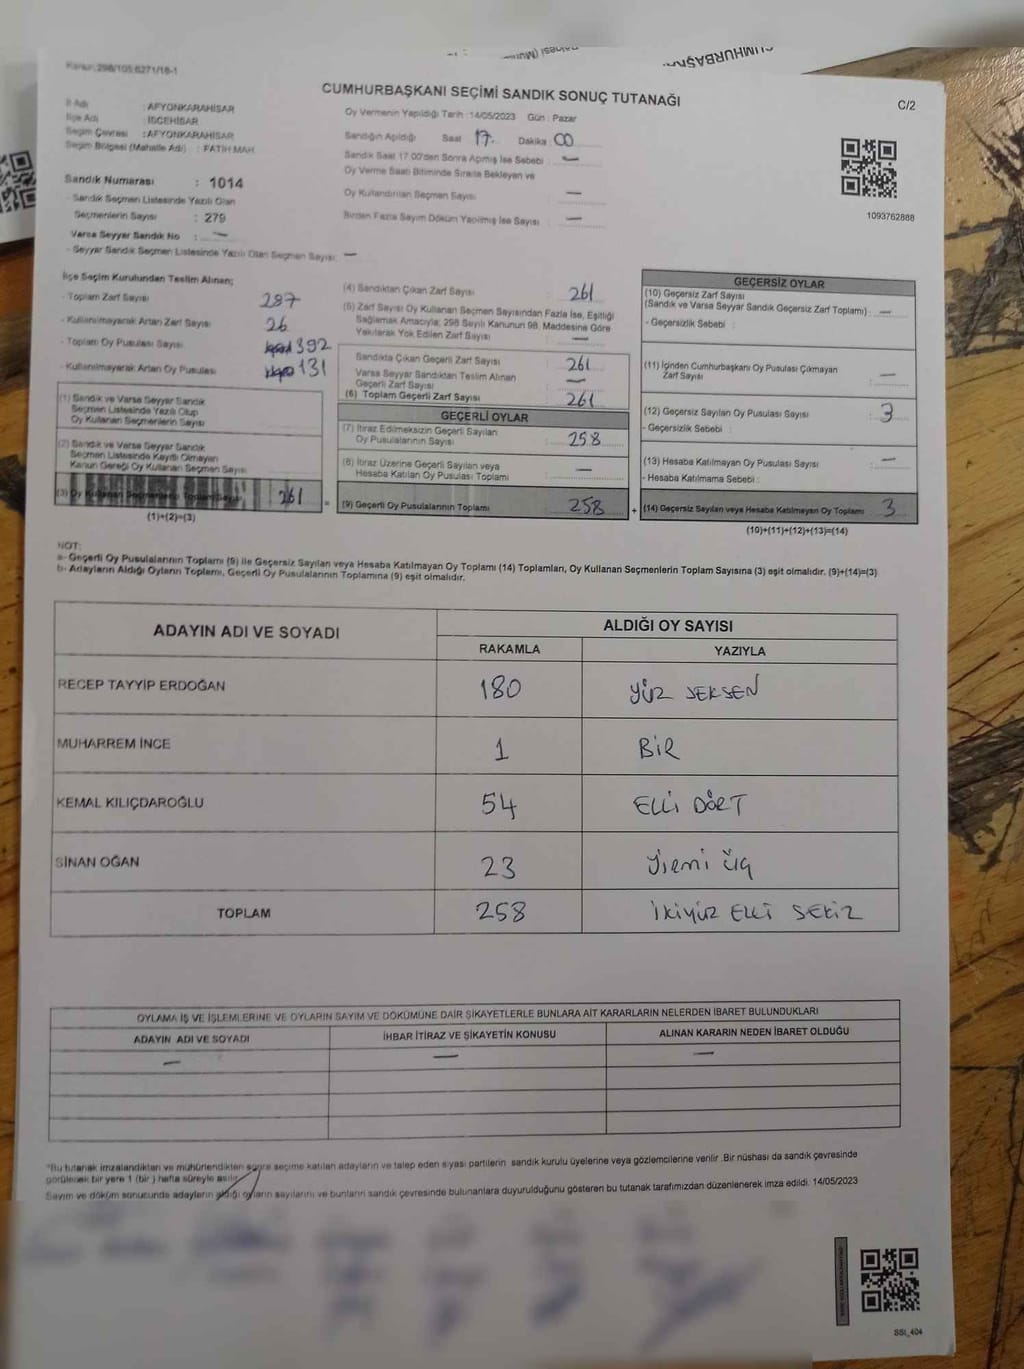 Kanun: 298/105 6271/18-1
CUMHURBAŞKANI SEÇİMİ SANDIK SONUÇ TUTANAĞI
C/2
İl Adı : AFYONKARAHİSAR
İlçe Adı : İSCEHİSAR
Seçim Çevresi : AFYONKARAHİSAR
Seçim Bölgesi (Mahalle Adı) : FATİH MAH.
Oy Vermenin Yapıldığı Tarih : 14/05/2023 Gün : Pazar
Sandığın Açıldığı Saat 17. Dakika : 00
Sandık Saat 17.00'den Sonra Açmış İse Sebebi : —
Oy Verme Saati Bitiminde Sırada Bekleyen ve
Oy Kullandırılan Seçmen Sayısı : —
Birden Fazla Sayım Döküm Yapılmış İse Sayısı : —
1093762888
Sandık Numarası : 1014
- Sandık Seçmen Listesinde Yazılı Olan
Seçmenlerin Sayısı : 279
Varsa Seyyar Sandık No : —
- Seyyar Sandık Seçmen Listesinde Yazılı Olan Seçmen Sayısı: —
İlçe Seçim Kurulundan Teslim Alınan;
- Toplam Zarf Sayısı 287
- Kullanılmayarak Artan Zarf Sayısı 26
- Toplam Oy Pusulası Sayısı 392
- Kullanılmayarak Artan Oy Pusulası 131
(1) Sandık ve Varsa Seyyar Sandık
Seçmen Listesinde Yazılı Olup
Oy Kullanan Seçmenlerin Sayısı
(2) Sandık ve Varsa Seyyar Sandık
Seçmen Listesinde Kayıtlı Olmayan
Kanun Gereği Oy Kullanan Seçmen Sayısı
(3) Oy Kullanan Seçmenlerin Toplam Sayısı 261 =
(1)+(2)=(3)
(4) Sandıktan Çıkan Zarf Sayısı : 261
(5) Zarf Sayısı Oy Kullanan Seçmen Sayısından Fazla İse, Eşitliği
Sağlamak Amacıyla; 298 Sayılı Kanunun 98. Maddesine Göre
Yakılarak Yok Edilen Zarf Sayısı : —
Sandıkta Çıkan Geçerli Zarf Sayısı : 261
Varsa Seyyar Sandıktan Teslim Alınan
Geçerli Zarf Sayısı : —
(6) Toplam Geçerli Zarf Sayısı : 261
GEÇERLİ OYLAR
(7) İtiraz Edilmeksizin Geçerli Sayılan
Oy Pusulalarının Sayısı : 258
(8) İtiraz Üzerine Geçerli Sayılan veya
Hesaba Katılan Oy Pusulası Toplamı : —
(9) Geçerli Oy Pusulalarının Toplamı : 258 +
GEÇERSİZ OYLAR
(10) Geçersiz Zarf Sayısı
(Sandık ve Varsa Seyyar Sandık Geçersiz Zarf Toplamı) : —
- Geçersizlik Sebebi :
(11) İçinden Cumhurbaşkanı Oy Pusulası Çıkmayan
Zarf Sayısı : —
(12) Geçersiz Sayılan Oy Pusulası Sayısı : 3
- Geçersizlik Sebebi :
(13) Hesaba Katılmayan Oy Pusulası Sayısı : —
- Hesaba Katılmama Sebebi :
(14) Geçersiz Sayılan veya Hesaba Katılmayan Oy Toplamı : 3
(10)+(11)+(12)+(13)=(14)
NOT:
a- Geçerli Oy Pusulalarının Toplamı (9) ile Geçersiz Sayılan veya Hesaba Katılmayan Oy Toplamı (14) Toplamları, Oy Kullanan Seçmenlerin Toplam Sayısına (3) eşit olmalıdır. (9)+(14)=(3)
b- Adayların Aldığı Oyların Toplamı, Geçerli Oy Pusulalarının Toplamına (9) eşit olmalıdır.
ADAYIN ADI VE SOYADI ALDIĞI OY SAYISI
RAKAMLA YAZIYLA
RECEP TAYYİP ERDOĞAN 180 YÜZ SEKSEN
MUHARREM İNCE 1 BİR
KEMAL KILIÇDAROĞLU 54 ELLİ DÖRT
SİNAN OĞAN 23 Yirmi Üç
TOPLAM 258 İKİYÜZ ELLİ SEKİZ
OYLAMA İŞ VE İŞLEMLERİNE VE OYLARIN SAYIM VE DÖKÜMÜNE DAİR ŞİKAYETLERLE BUNLARA AİT KARARLARIN NELERDEN İBARET BULUNDUKLARI
ADAYIN ADI VE SOYADI İHBAR İTİRAZ VE ŞİKAYETİN KONUSU ALINAN KARARIN NEDEN İBARET OLDUĞU
— — —
*Bu tutanak imzalandıktan ve mühürlendikten sonra seçime katılan adayların ve talep eden siyasi partilerin sandık kurulu üyelerine veya gözlemcilerine verilir. Bir nüshası da sandık çevresinde
görülecek bir yere 1 (bir) hafta süreyle asılır.
Sayım ve döküm sonucunda adayların aldığı oyların sayılarını ve bunların sandık çevresinde bulunanlara duyurulduğunu gösteren bu tutanak tarafımızdan düzenlenerek imza edildi. 14/05/2023
SSI_404